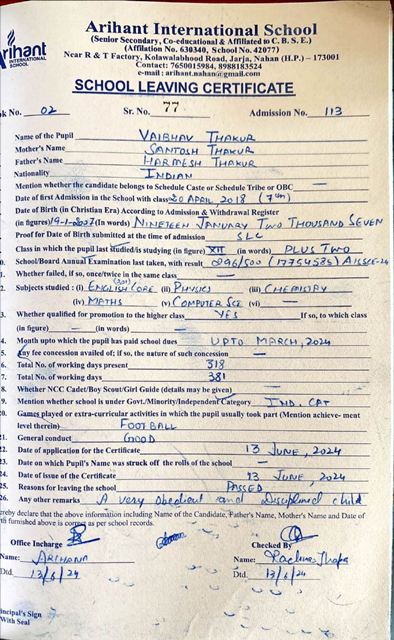 Arihant International School
(Senior Secondary, Co-educational & Affiliated to C. B. S. E.)
(Affilation No. 630340, School No. 42077)
Near R & T Factory, Kolawalabhood Road, Jarja, Nahan (H.P.) – 173001
Contact: 7650015984, 8988183524
e-mail : arihant.nahan@gmail.com
Arihant
INTERNATIONAL
SCHOOL
SCHOOL LEAVING CERTIFICATE
ok No. 02 Sr. No. 77 Admission No. 113
Name of the Pupil VAIBHAV THAKUR
Mother's Name SANTOSH THAKUR
Father's Name HARMESH THAKUR
Nationality INDIAN
Mention whether the candidate belongs to Schedule Caste or Schedule Tribe or OBC —
Date of first Admission in the School with class 20 APRIL 2018 (7th)
Date of Birth (in Christian Era) According to Admission & Withdrawal Register
(in figures) 19-1-2007 (In words) NINETEEN JANUARY TWO THOUSAND SEVEN
Proof for Date of Birth submitted at the time of admission SLC
Class in which the pupil last studied/is studying (in figure) XII (in words) PLUS TWO
0. School/Board Annual Examination last taken, with result 296/500 (17754585) AISSCE-24
1. Whether failed, if so, once/twice in the same class —
2. Subjects studied : (i) ENGLISH CORE (301) (ii) PHYSICS (iii) CHEMISTRY
(iv) MATHS (v) COMPUTER SCE (vi) —
3. Whether qualified for promotion to the higher class YES If so, to which class
(in figure) — (in words) —
4. Month upto which the pupil has paid school dues UPTO MARCH, 2024
5. Any fee concession availed of; if so, the nature of such concession —
6. Total No. of working days present 318
7. Total No. of working days 381
8. Whether NCC Cadet/Boy Scout/Girl Guide (details may be given) —
9. Mention whether school is under Govt./Minority/Independent Category IND. CAT
20. Games played or extra-curricular activities in which the pupil usually took part (Mention achieve- ment
level therein) FOOTBALL
21. General conduct GOOD
22. Date of application for the Certificate 13 JUNE, 2024
23. Date on which Pupil's Name was struck off the rolls of the school —
24. Date of issue of the Certificate 13 JUNE, 2024
25. Reasons for leaving the school PASSED
26. Any other remarks A very obedient and Disciplined child
ereby declare that the above information including Name of the Candidate, Father's Name, Mother's Name and Date of
th furnished above is correct as per school records.
Office Incharge Checked By
Name: ARIHANA Name: Rachna Thapa
Dtd. 13/6/24 Dtd. 13/6/24
incipal's Sign
With Seal